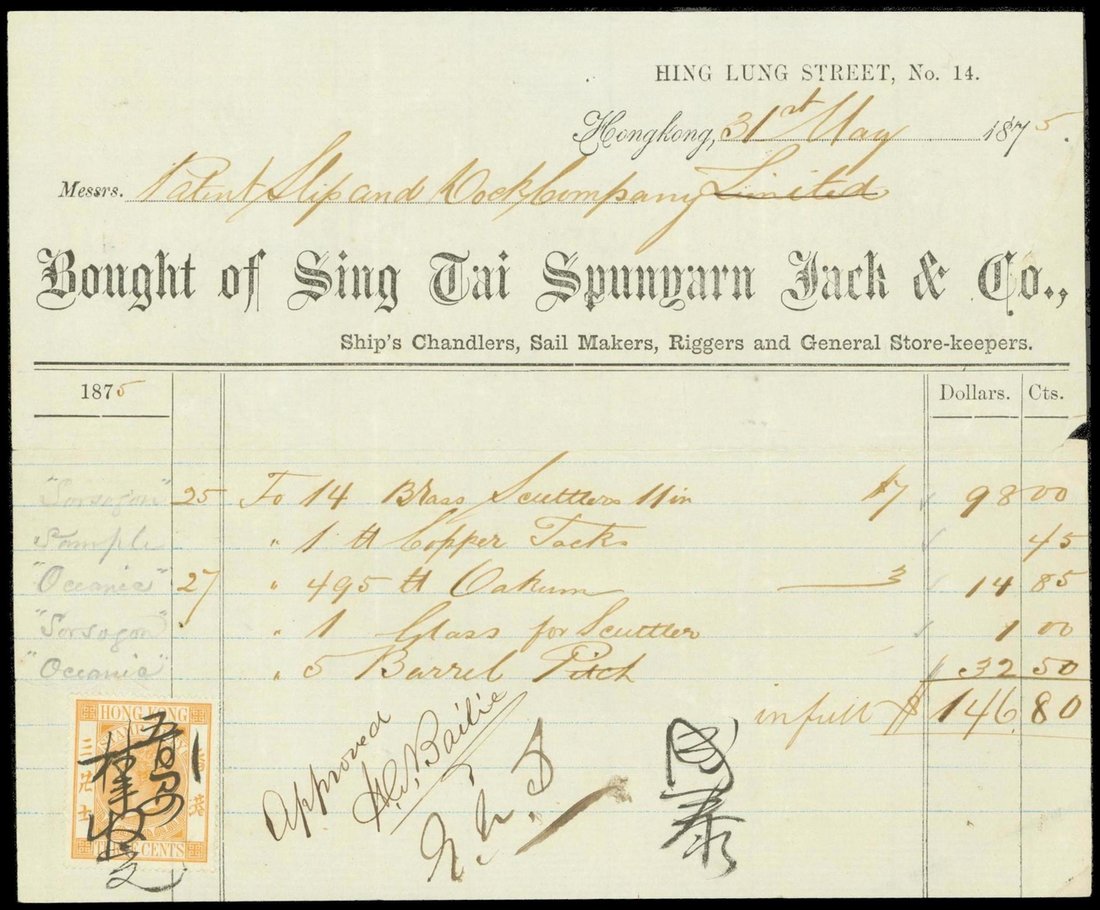 HING LUNG STREET, No. 14.
Hongkong, 31st May 1875.
Messrs. Patent Slip and Dock Company Limited
Bought of Sing Tai Spunyarn Jack & Co.,
Ship's Chandlers, Sail Makers, Riggers and General Store-keepers.
1875 Dollars. Cts.
"Sorsogon" 25 To 14 Brass Scuttlers 11 in $7 98 00
Sample " 1 lb Copper Tacks 45
"Oceania" 27 " 495 lb Oakum 3 14 85
"Sorsogon" " 1 Glass for Scuttler 1 00
"Oceanie" " 5 Barrel Pitch 32 50
in full $ 146 80
Approved
Bailie
HONG KONG
THREE CENTS